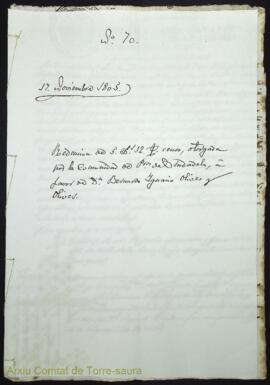 Nº 70.
17. Noviembre 1805.
Redencion de 5. 12 censo, otorgada
por la Comunidad de de Ciudadela, à
favor de Dn. Bernardo Ignacio Olives y
Olives.
Arxiu Comtat de Torre-saura